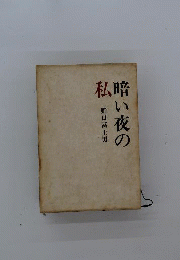 暗い夜の
私
野口冨士男